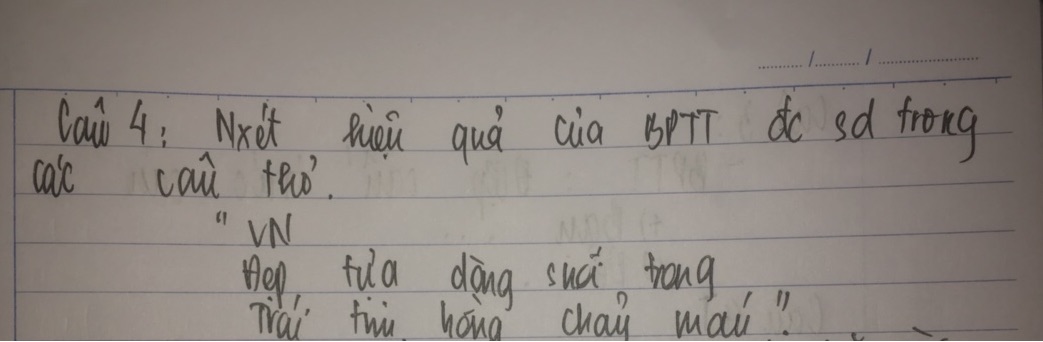 Câu 4: Nxét hiệu quả của BPTT đc sd trong
các câu thơ.
"VN
Đẹp tựa dòng suối trong
Trái tim hồng chảy máu".